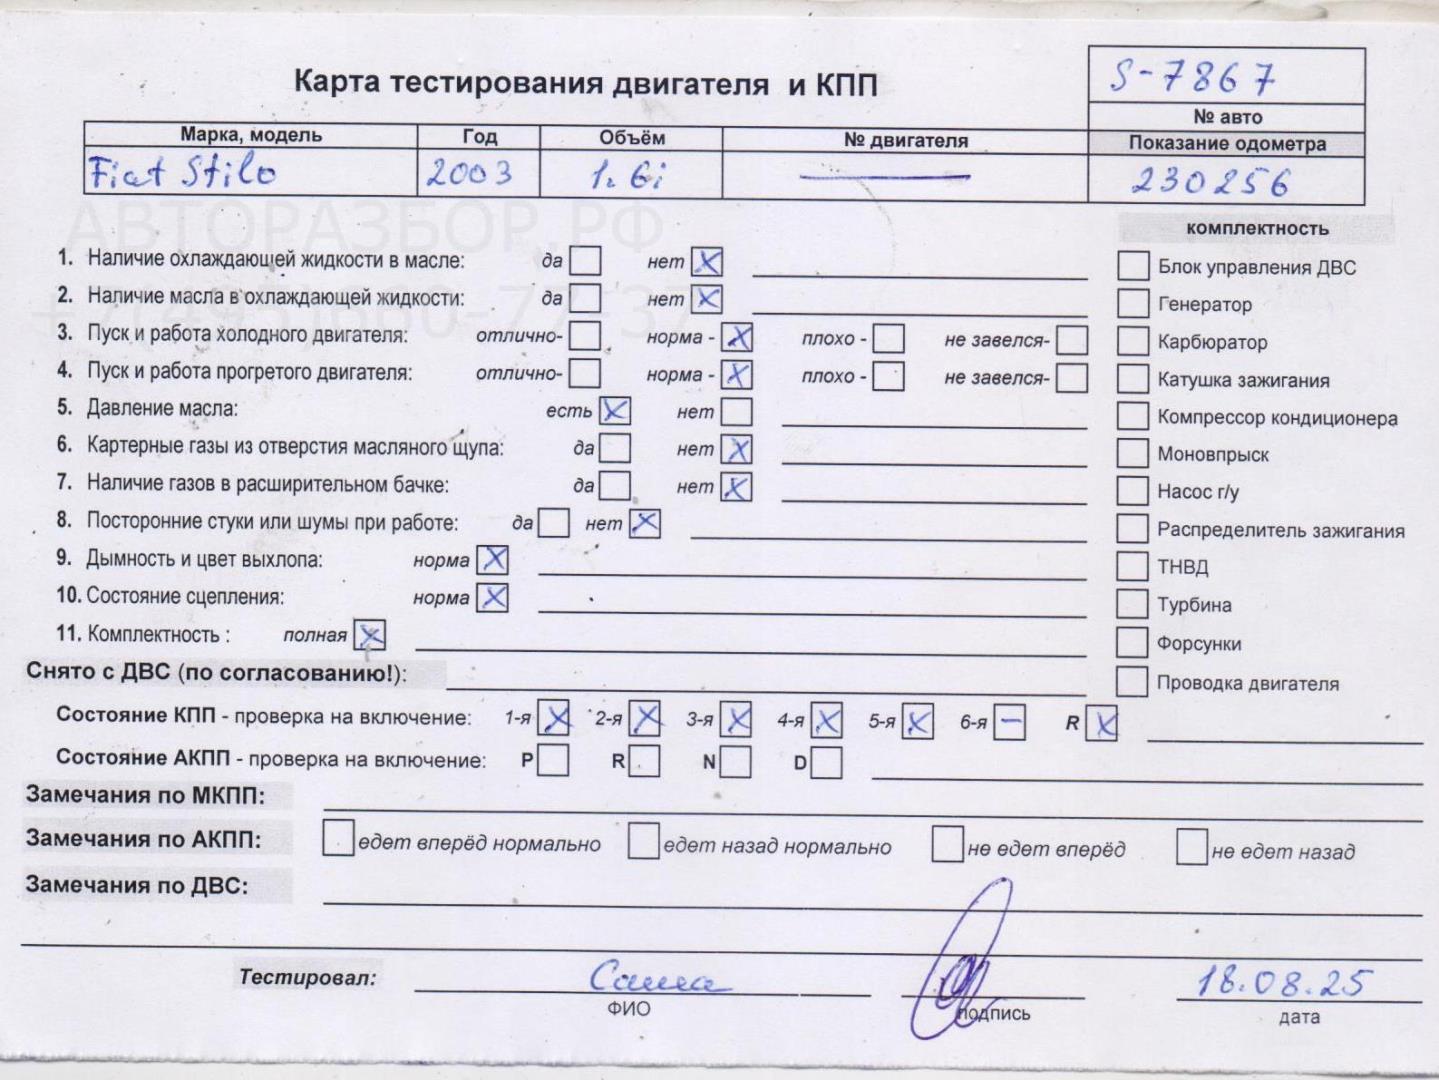 Карта тестирования двигателя и КПП
S-7867
№ авто
Марка, модель Год Объём № двигателя Показание одометра
Fiat Stilo 2003 1.6i — 230256
АВТОРАЗБОР.РФ
+7(495)660-77-37
комплектность
1. Наличие охлаждающей жидкости в масле: да нет X
Блок управления ДВС
2. Наличие масла в охлаждающей жидкости: да нет X
Генератор
3. Пуск и работа холодного двигателя: отлично- норма - X плохо - не завелся-
Карбюратор
4. Пуск и работа прогретого двигателя: отлично- норма - X плохо - не завелся-
Катушка зажигания
5. Давление масла: есть X нет
Компрессор кондиционера
6. Картерные газы из отверстия масляного щупа: да нет X
Моновпрыск
7. Наличие газов в расширительном бачке: да нет X
Насос г/у
8. Посторонние стуки или шумы при работе: да нет X
Распределитель зажигания
9. Дымность и цвет выхлопа: норма X
ТНВД
10. Состояние сцепления: норма X
Турбина
11. Комплектность : полная X
Форсунки
Снято с ДВС (по согласованию!):
Проводка двигателя
Состояние КПП - проверка на включение: 1-я X 2-я X 3-я X 4-я X 5-я X 6-я — R X
Состояние АКПП - проверка на включение: P R N D
Замечания по МКПП:
Замечания по АКПП: едет вперёд нормально едет назад нормально не едет вперёд не едет назад
Замечания по ДВС:
Тестировал: Саша 18.08.25
ФИО подпись дата